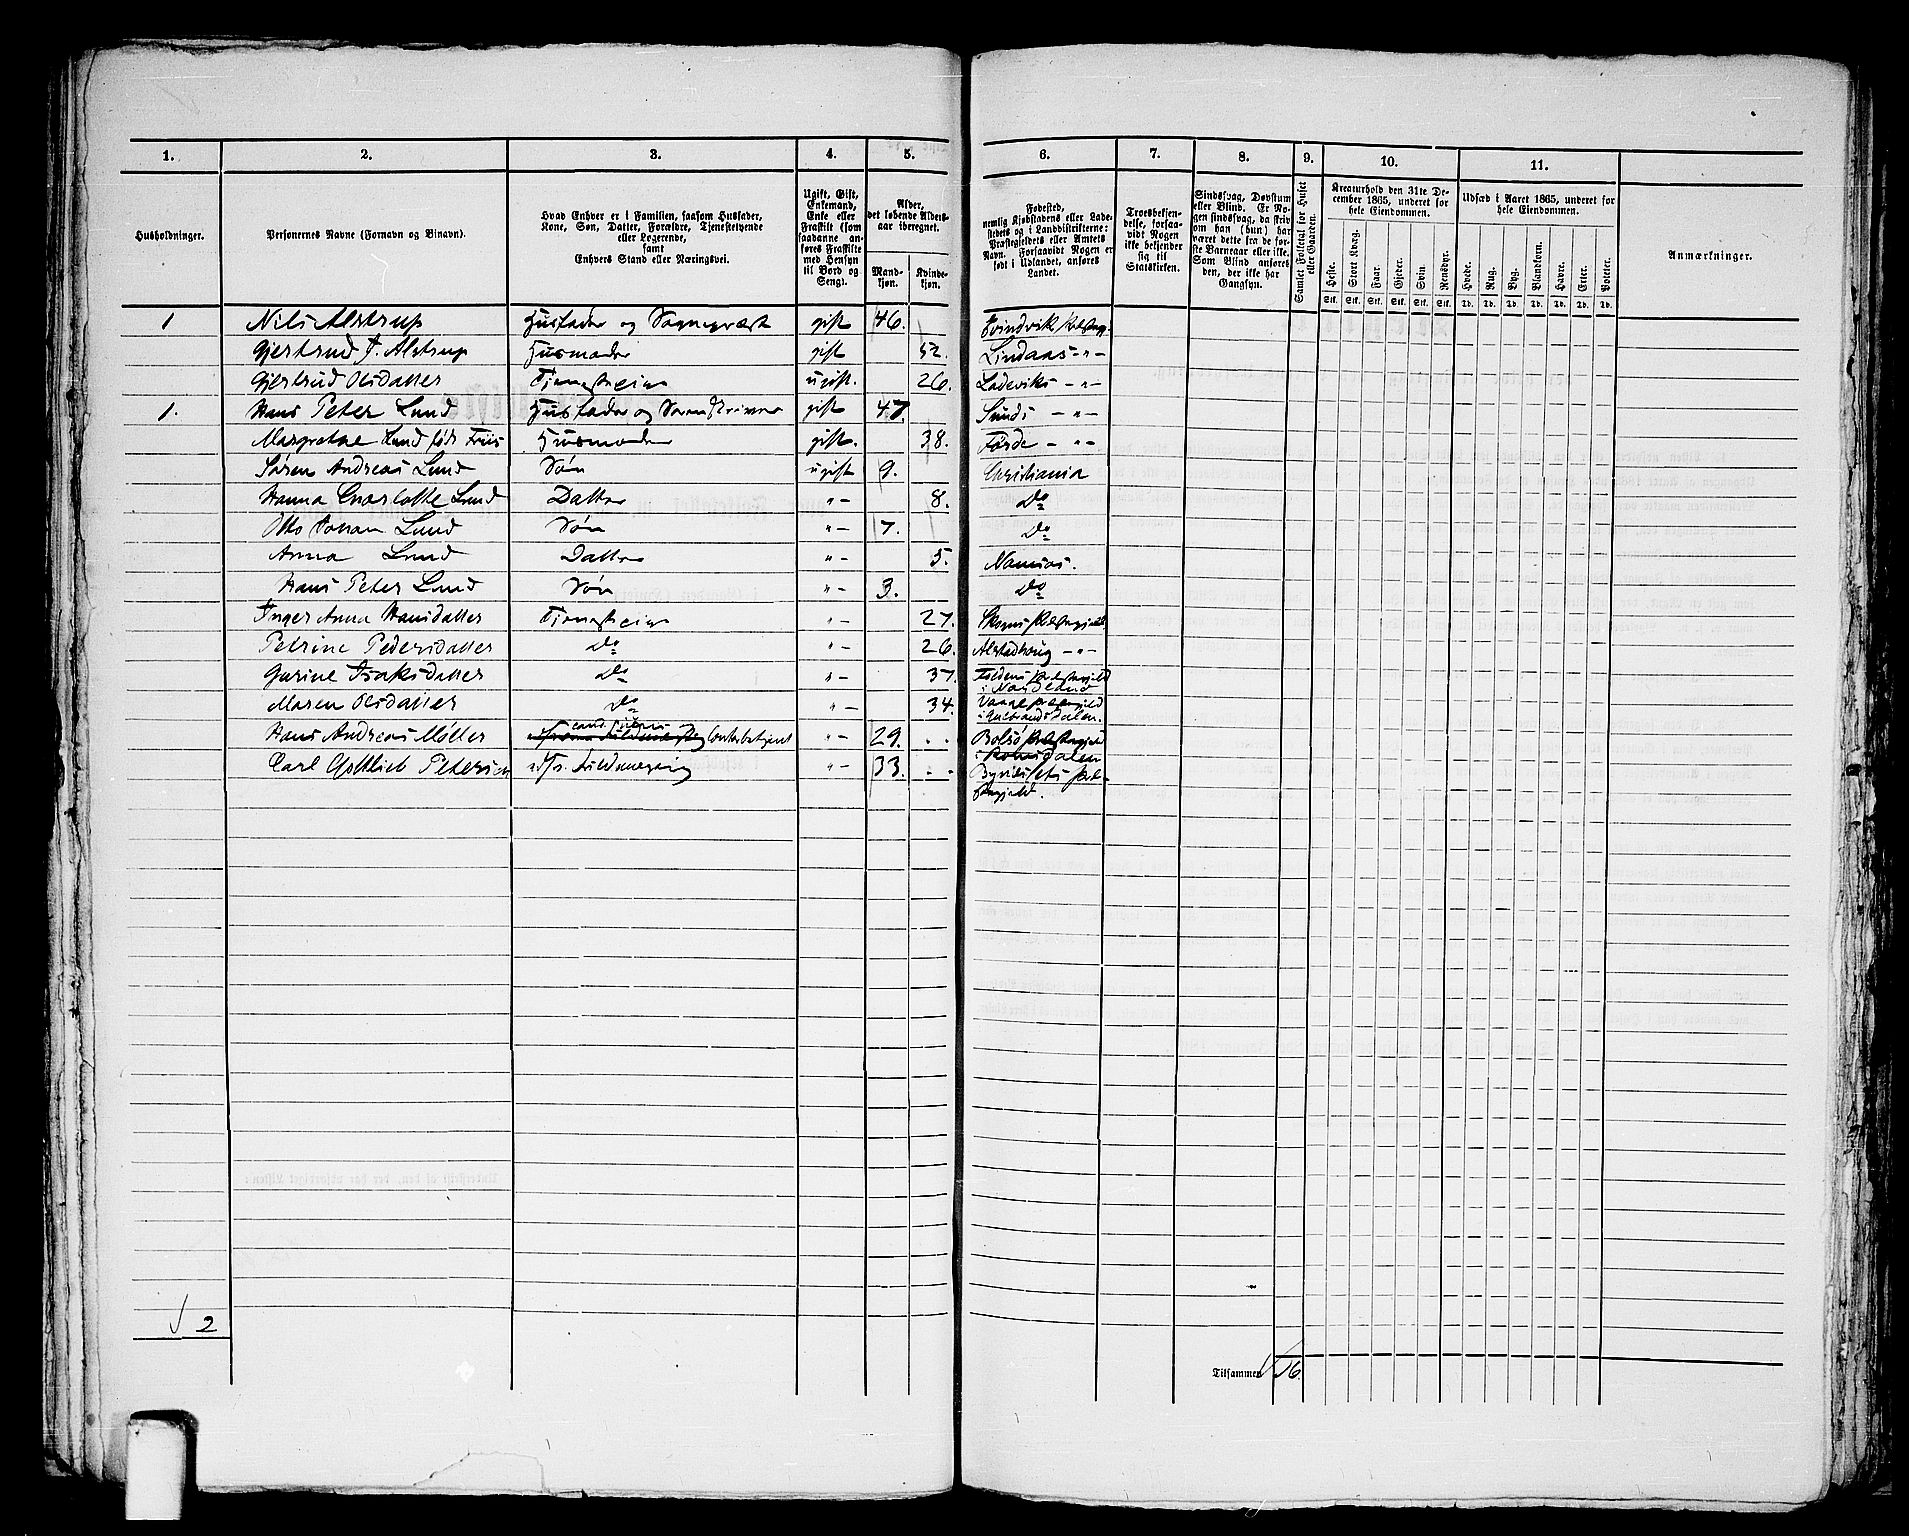 1. 2. 3. 4. 5. 6. 7. 8. 9. 10. 11.
Husholdninger.
Personernes Navne (Fornavn og Binavn).
Hvad Enhver er i Familien, saasom Husfader,
Kone, Søn, Datter, Forældre, Tjenestetyende
eller Logerende,
samt
Enhvers Stand eller Næringsvei.
Ugift, Gift,
Enkemand,
Enke eller
Fraskilt (som
saadanne an-
føres Fraskilte
med Hensyn
til Bord og
Seng).
Alder,
det løbende Alders-
aar iberegnet.
Mand-
kjøn.
Kvinde-
kjøn.
Fødested,
nemlig Kjøbstadens eller Lade-
stedets og i Landdistrikterne:
Præstegjeldets eller Amtets
Navn. Forsaavidt Nogen er
født i Udlandet, anføres
Landet.
Troesbekjen-
delse, forsaa-
vidt Nogen
ikke bekjender
sig til
Statskirken.
Sindssvag, Døvstum
eller Blind. Er No-
gen sindssvag, da skriv
om han (hun) har
været dette fra de før-
ste Barneaar eller ikke.
Som Blind anføres
den, der ikke har
Gangsyn.
Samlet Folketal for Huset
eller Gaarden.
Kreaturhold den 31te De-
cember 1865, underet for
hele Eiendommen.
Heste. Stort Kvæg. Faar. Gjeder. Svin. Rensdyr.
Stk. Stk. Stk. Stk. Stk. Stk.
Udsæd i Aaret 1865, underet for
hele Eiendommen.
Hvede. Rug. Byg. Blandkorn. Havre. Erter. Poteter.
Td. Td. Td. Td. Td. Td. Td.
Anmærkninger.
1 Nils Alstrup Husfader og Sognepræst gift 46. Evindvik
Gjertrud Alstrup Husmoder gift 52. Lindaas -"-
Gjertrud Olsdatter ugift. 26. Ladeviks -"-
1. Hans Peter Lund Husfader og Sorenskriver gift 47. Sunds -"-
Margrethe Lund født Friis Husmoder gift. 38. Førde -"-
Søren Andreas Lund Søn ugift 9. Christiania
Hanna Charlotte Lund Datter "- 8. Do
Otto Johan Lund Søn "- 7. Do
Anna Lund Datter "- 5. Namsos.
Hans Peter Lund Søn "- 3. Do
Inger Anna Hansdatter "- 27. Skogns
Petrine Pedersdatter Do "- 26. Alstadhoug -"-
Gurine Isaksdatter Do "- 37. Foldens
i Nordland
Maren Olsdatter Do "- 34. Vaage
i Gulbrandsdalen.
Hans Andreas Møller Contorbetjent "- 29. Bolsø
i Romsdalen
Carl Gottlieb Petersen "- 33.
√ 2
Tilsammen √ 16.